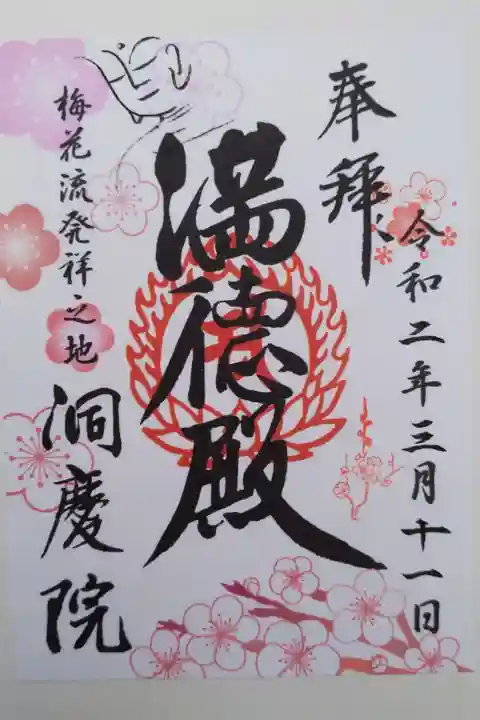 奉拜
令和二年三月十一日
満徳殿
梅花流発祥之地
洞慶院